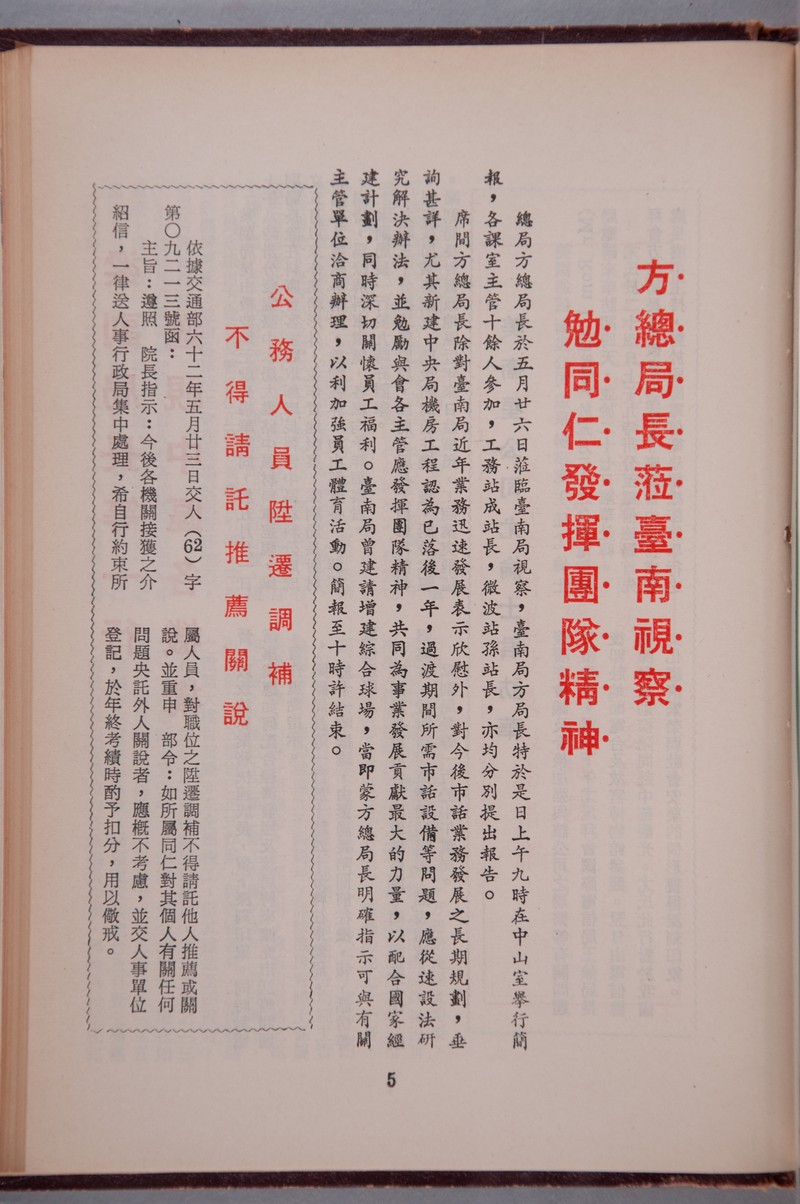 方總局長蒞臺南視察
勉同仁發揮團隊精神
總局方總局長於五月廿六日蒞臨臺南局視察，臺南局方局長特於是日上午九時在中山室舉行簡
報，各課室主管十餘人參加，工務站成站長，微波站孫站長，亦均分別提出報告。
席間方總局長除對臺南局近年業務迅速發展表示欣慰外，對今後市話業務發展之長期規劃，垂
詢甚詳，尤其新建中央局機房工程認為已落後一年，過渡期間所需市話設備等問題，應從速設法研
究解決辦法，並勉勵與會各主管應發揮團隊精神，共同為事業發展貢獻最大的力量，以配合國家經
建計劃，同時深切關懷員工福利。臺南局曾建請增建綜合球場，當即蒙方總局長明確指示可與有關
主管單位洽商辦理，以利加強員工體育活動。簡報至十時許結束。
公務人員陞遷調補
不得請託推薦關說
依據交通部六十二年五月廿三日交人（62）字
第〇九二一三號函：
主旨：遵照　院長指示：今後各機關接獲之介
紹信，一律送人事行政局集中處理，希自行約束所
屬人員，對職位之陞遷調補不得請託他人推薦或關
說。並重申　部令：如所屬同仁對其個人有關任何
問題央託外人關說者，應概不考慮，並交人事單位
登記，於年終考績時酌予扣分，用以儆戒。
5